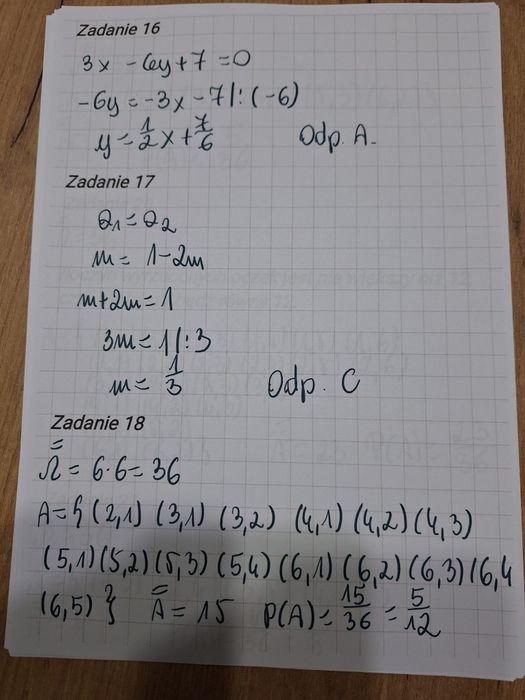 Zadanie 16
3x - 6y + 7 = 0
-6y = -3x - 7 |: (-6)
y = 1/2 x + 7/6 Odp. A.
Zadanie 17
a₁ = a₂
m = 1 - 2m
m + 2m = 1
3m = 1 |: 3
m = 1/3 Odp. C
Zadanie 18
Ω̿ = 6·6 = 36
A = { (2,1) (3,1) (3,2) (4,1) (4,2) (4,3)
(5,1) (5,2) (5,3) (5,4) (6,1) (6,2) (6,3) (6,4
(6,5) } A̿ = 15 P(A) = 15/36 = 5/12